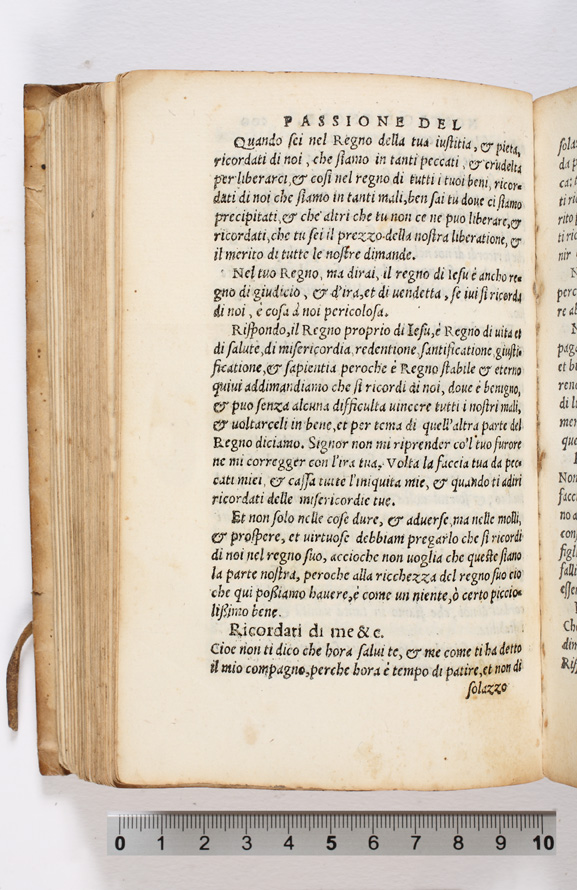 PASSIONE DEL
Quando sei nel Regno della tua iustitia, & pieta,
ricordati di noi, che siamo in tanti peccati, & crudelta
per liberarci, & cosi nel regno di tutti i tuoi beni, ricor-
dati di noi che siamo in tanti mali, ben sai tu doue ci siamo
precipitati, & che altri che tu non ce ne puo liberare, &
ricordati, che tu sei il prezzo della nostra liberatione, &
il merito di tutte le nostre dimande.
Nel tuo Regno, ma dirai, il regno di Iesu è ancho re-
gno di giudicio, & d'ira, et di uendetta, se iui si ricorda
di noi, è cosa à noi pericolosa.
Rispondo, il Regno proprio di Iesu, è Regno di uita et
di salute, di misericordia, redentione, santificatione, giusti-
ficatione, & sapientia peroche è Regno stabile & eterno
quiui addimandiamo che si ricordi di noi, doue è benigno,
& puo senza alcuna difficulta uincere tutti i nostri mali,
& uoltarceli in bene, et per tema di quell'altra parte del
Regno diciamo. Signor non mi riprender co'l tuo furore
ne mi corregger con l'ira tua, Volta la faccia tua da pec-
cati miei, & cassa tutte l'iniquita mie, & quando ti adiri
ricordati delle misericordie tue.
Et non solo nelle cose dure, & aduerse, ma nelle molli,
& prospere, et uirtuose debbiam pregarlo che si ricordi
di noi nel regno suo, accioche non uoglia che queste siano
la parte nostra, peroche alla ricchezza del regno suo cio
che qui possiamo hauere, è come un niente, ò certo piccio-
lissimo bene.
Ricordati di me & c.
Cioe non ti dico che hora salui te, & me come ti ha detto
il mio compagno, perche hora è tempo di patire, et non di
solazzo
0 1 2 3 4 5 6 7 8 9 10